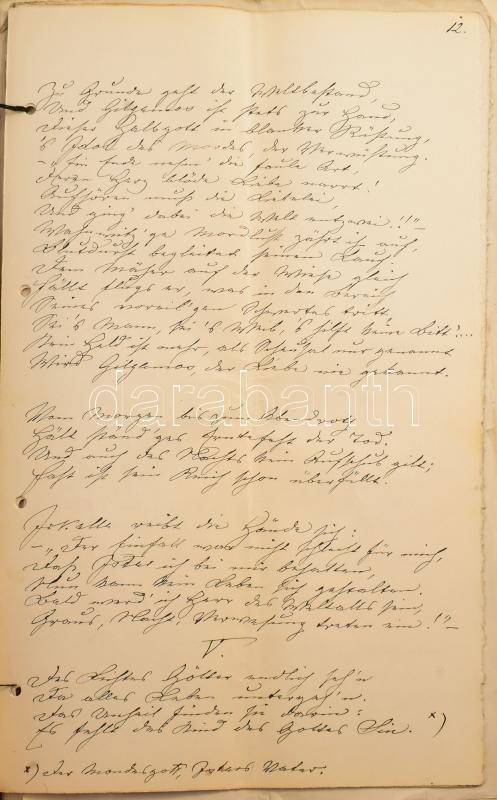 12.
Zu Grunde geht der Weltbestand,
Und Gilgamos ist stets zur Hand,
Dieser Halbgott in blanker Rüstung,
's Idol des Mordes, der Verwüstung.
– „Ein Ende nehm' die faule Art,
Deren Herz blöde Liebe narrt!
Aufhören muß die Liebelei,
Und ging' dabei die Welt entzwei!!"–
Wahnwitz'ge Mordlust zehrt ihn auf,
Blutdurst begleitet seinen Lauf.
Dem Mäher auf der Wiese gleich
Fällt flugs er, was in den Bereich
Seines voreil'gen Schwertes tritt,
Sei's Mann, sei's Weib, 's hilft keine Bitt'!...
Kein Held ist mehr, als Scheusal nur genannt
Wird Gilgamos, der Liebe nie gekannt.
Vom Morgen bis zum Abendroth
Hält stand'ges Erntefest der Tod.
Und auch des Nachts kein Aufschub gilt;
Fast ist sein Reich schon überfüllt.
Irkalla reibt die Hände sich:
– „Der Einfall war nicht schlecht für mich,
Daß Istar ich bei mir behalten,
Nun kann kein Leben sich gestalten.
Bald werd' ich Herr des Weltalls sein,
Graus, Nacht, Verwesung treten ein!"–
V.
Des Lichtes Götter endlich seh'n
Da alles Leben untergeh'n.
Das Unheil finden sie darin:
Es fehlt das Kind des Gottes Sin. x)
x) Der Mondesgott, Istars Vater.
darabanth